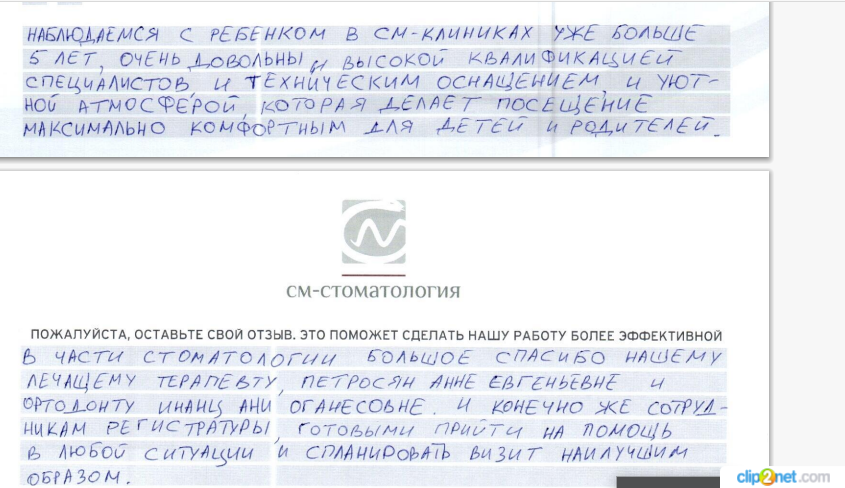 НАБЛЮДАЕМСЯ С РЕБЕНКОМ В СМ-КЛИНИКАХ УЖЕ БОЛЬШЕ
5 ЛЕТ, ОЧЕНЬ ДОВОЛЬНЫ И ВЫСОКОЙ КВАЛИФИКАЦИЕЙ
СПЕЦИАЛИСТОВ, И ТЕХНИЧЕСКИМ ОСНАЩЕНИЕМ, И УЮТ-
НОЙ АТМОСФЕРОЙ, КОТОРАЯ ДЕЛАЕТ ПОСЕЩЕНИЕ
МАКСИМАЛЬНО КОМФОРТНЫМ ДЛЯ ДЕТЕЙ И РОДИТЕЛЕЙ.
СМ-СТОМАТОЛОГИЯ
ПОЖАЛУЙСТА, ОСТАВЬТЕ СВОЙ ОТЗЫВ. ЭТО ПОМОЖЕТ СДЕЛАТЬ НАШУ РАБОТУ БОЛЕЕ ЭФФЕКТИВНОЙ
В ЧАСТИ СТОМАТОЛОГИИ БОЛЬШОЕ СПАСИБО НАШЕМУ
ЛЕЧАЩЕМУ ТЕРАПЕВТУ, ПЕТРОСЯН АННЕ ЕВГЕНЬЕВНЕ И
ОРТОДОНТУ ИНАНЦ АНИ ОГАНЕСОВНЕ. И КОНЕЧНО ЖЕ СОТРУД-
НИКАМ РЕГИСТРАТУРЫ, ГОТОВЫМИ ПРИЙТИ НА ПОМОЩЬ
В ЛЮБОЙ СИТУАЦИИ И СПЛАНИРОВАТЬ ВИЗИТ НАИЛУЧШИМ
ОБРАЗОМ.
clip2net.com